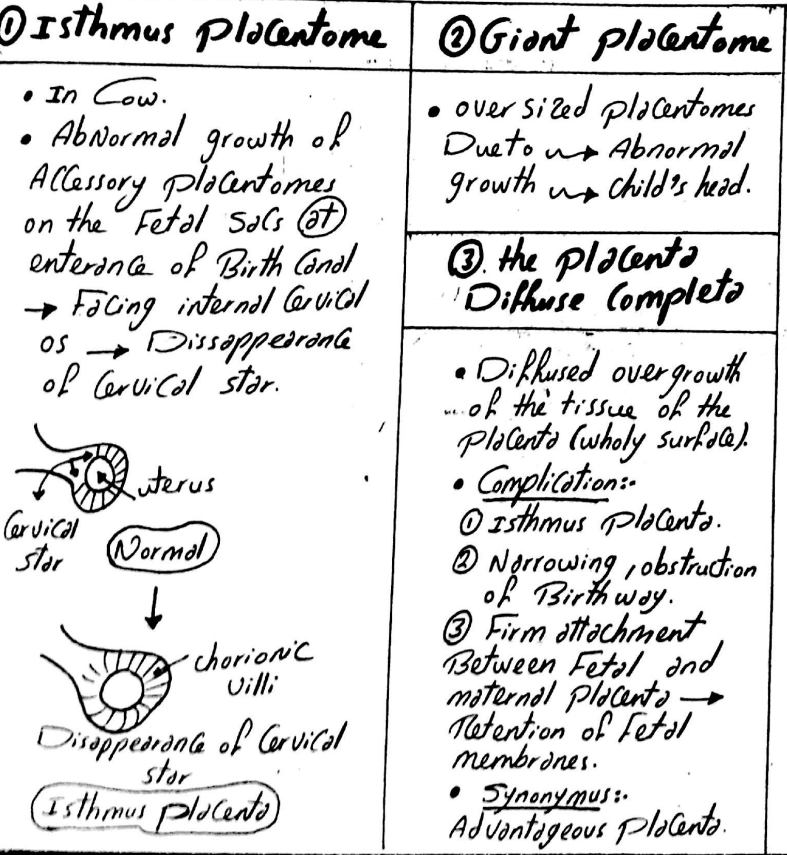 ① Isthmus placentome
• In Cow.
• Abnormal growth of
Accessory placentomes
on the Fetal Sacs at
enterance of Birth Canal
→ Facing internal Cervical
os → Dissappearance
of Cervical star.
uterus
Cervical
star
Normal
chorionic
villi
Disappearance of Cervical
star
Isthmus placenta
② Giant placentome
• over sized placentomes
Due to → Abnormal
growth → child's head.
③. the placenta
Diffuse Completa
• Diffused overgrowth
of the tissue of the
placenta (wholy surface).
• Complication:-
① Isthmus placenta.
② Narrowing, obstruction
of Birth way.
③ Firm attachment
Between Fetal and
maternal placenta →
Retention of Fetal
membranes.
• Synonymus:-
Advantageous placenta.